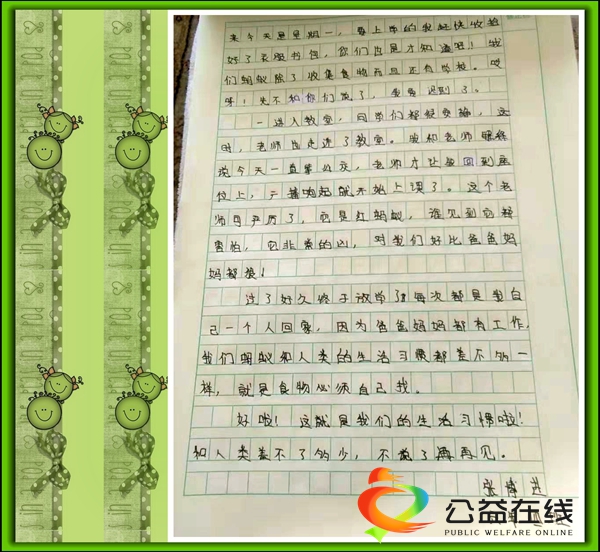 来今天是星期一，要上学的我赶快收拾
好了衣服书包，你们也是才知道吧！我
们蚂蚁除了收集食物而且还有学校。哎
呀！先不和你们说了，我要迟到了。
一进入教室，同学们都很安静，这
时，老师也走进了教室。我和老师解释
说今天一直 老师才让我回到座
位上，一 响起就开始上课了。这个老
师可严厉了，它是红蚂蚁，谁见到它都
害怕，它非常的凶，对我们好比爸爸妈
妈都狠！
过了好久终于放学了，每次都是我自
己一个人回家，因为爸爸妈妈都有工作，
我们蚂蚁和人类的生活习惯都差不多一
样，就是食物必须自己找。
好啦！这就是我们的生活习惯啦！
和人类差不了多少，不说了再见。
公益在线
PUBLIC WELFARE ONLINE